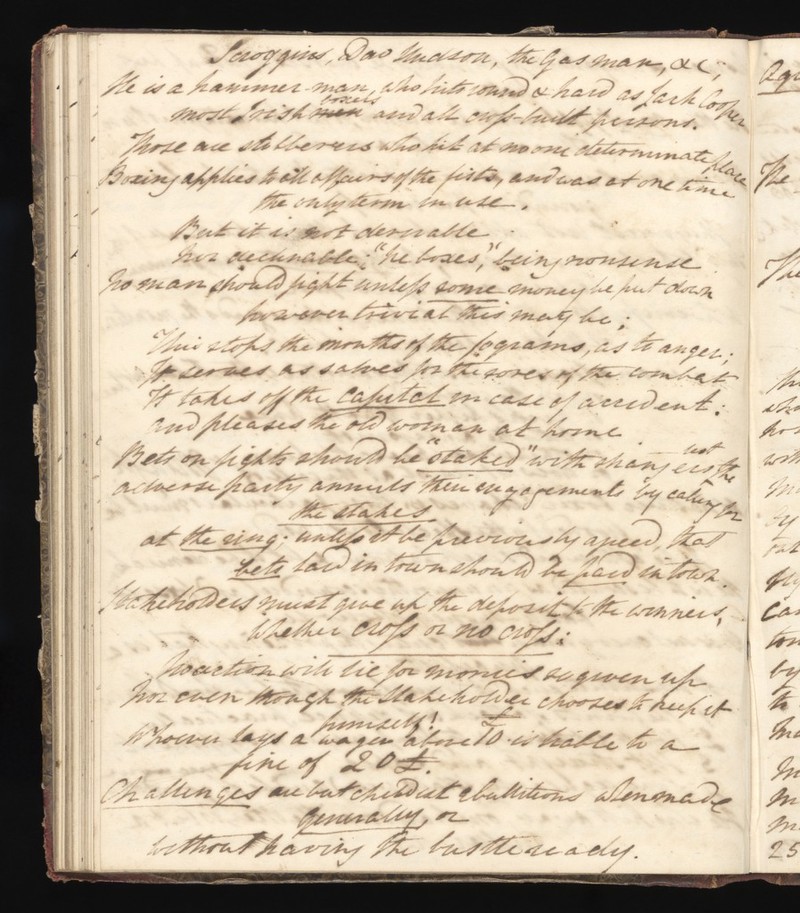 Scroggins, Dav Hudson, the Gas man, &c,
He is a hammer-man, who hits round & hard as Jack Cooper
boxers
most Irish men and all cross-built persons.
Those are slobberers who hit at no one determinate place
Boxing applies to all affairs of the fists, and was at one time
the only term in use.
But it is not derivable
nor declinable; "he boxes," being nonsense
No man should fight unless some money be put down
however trivial this may be;
This stops the mouths of the fograms, as to anger;
It serves as salves for the sores of the combat
It takes off the capital in case of accident:
and pleases the old woman at home
Bets on fights should be "staked" with stakeholders
adverse party annuls their engagements by calling for
the stakes
at the ring; unless it be previously agreed, that
bets laid in town should be paid in town.
Stakeholders must give up the deposit to the winners,
Whether cross or no cross:
No action will lie for monies so given up
Nor even though the Stakeholder chooses to keep it
himself!
Whoever lays a wager above 10£ is liable to a
fine of 20£.
Challenges are but chiefest ebullitions when made
generally, or
without having the bustle ready.
The
25